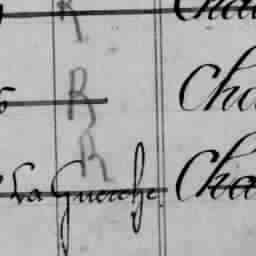 R Cha
R Cha
R
La Guerche Cha